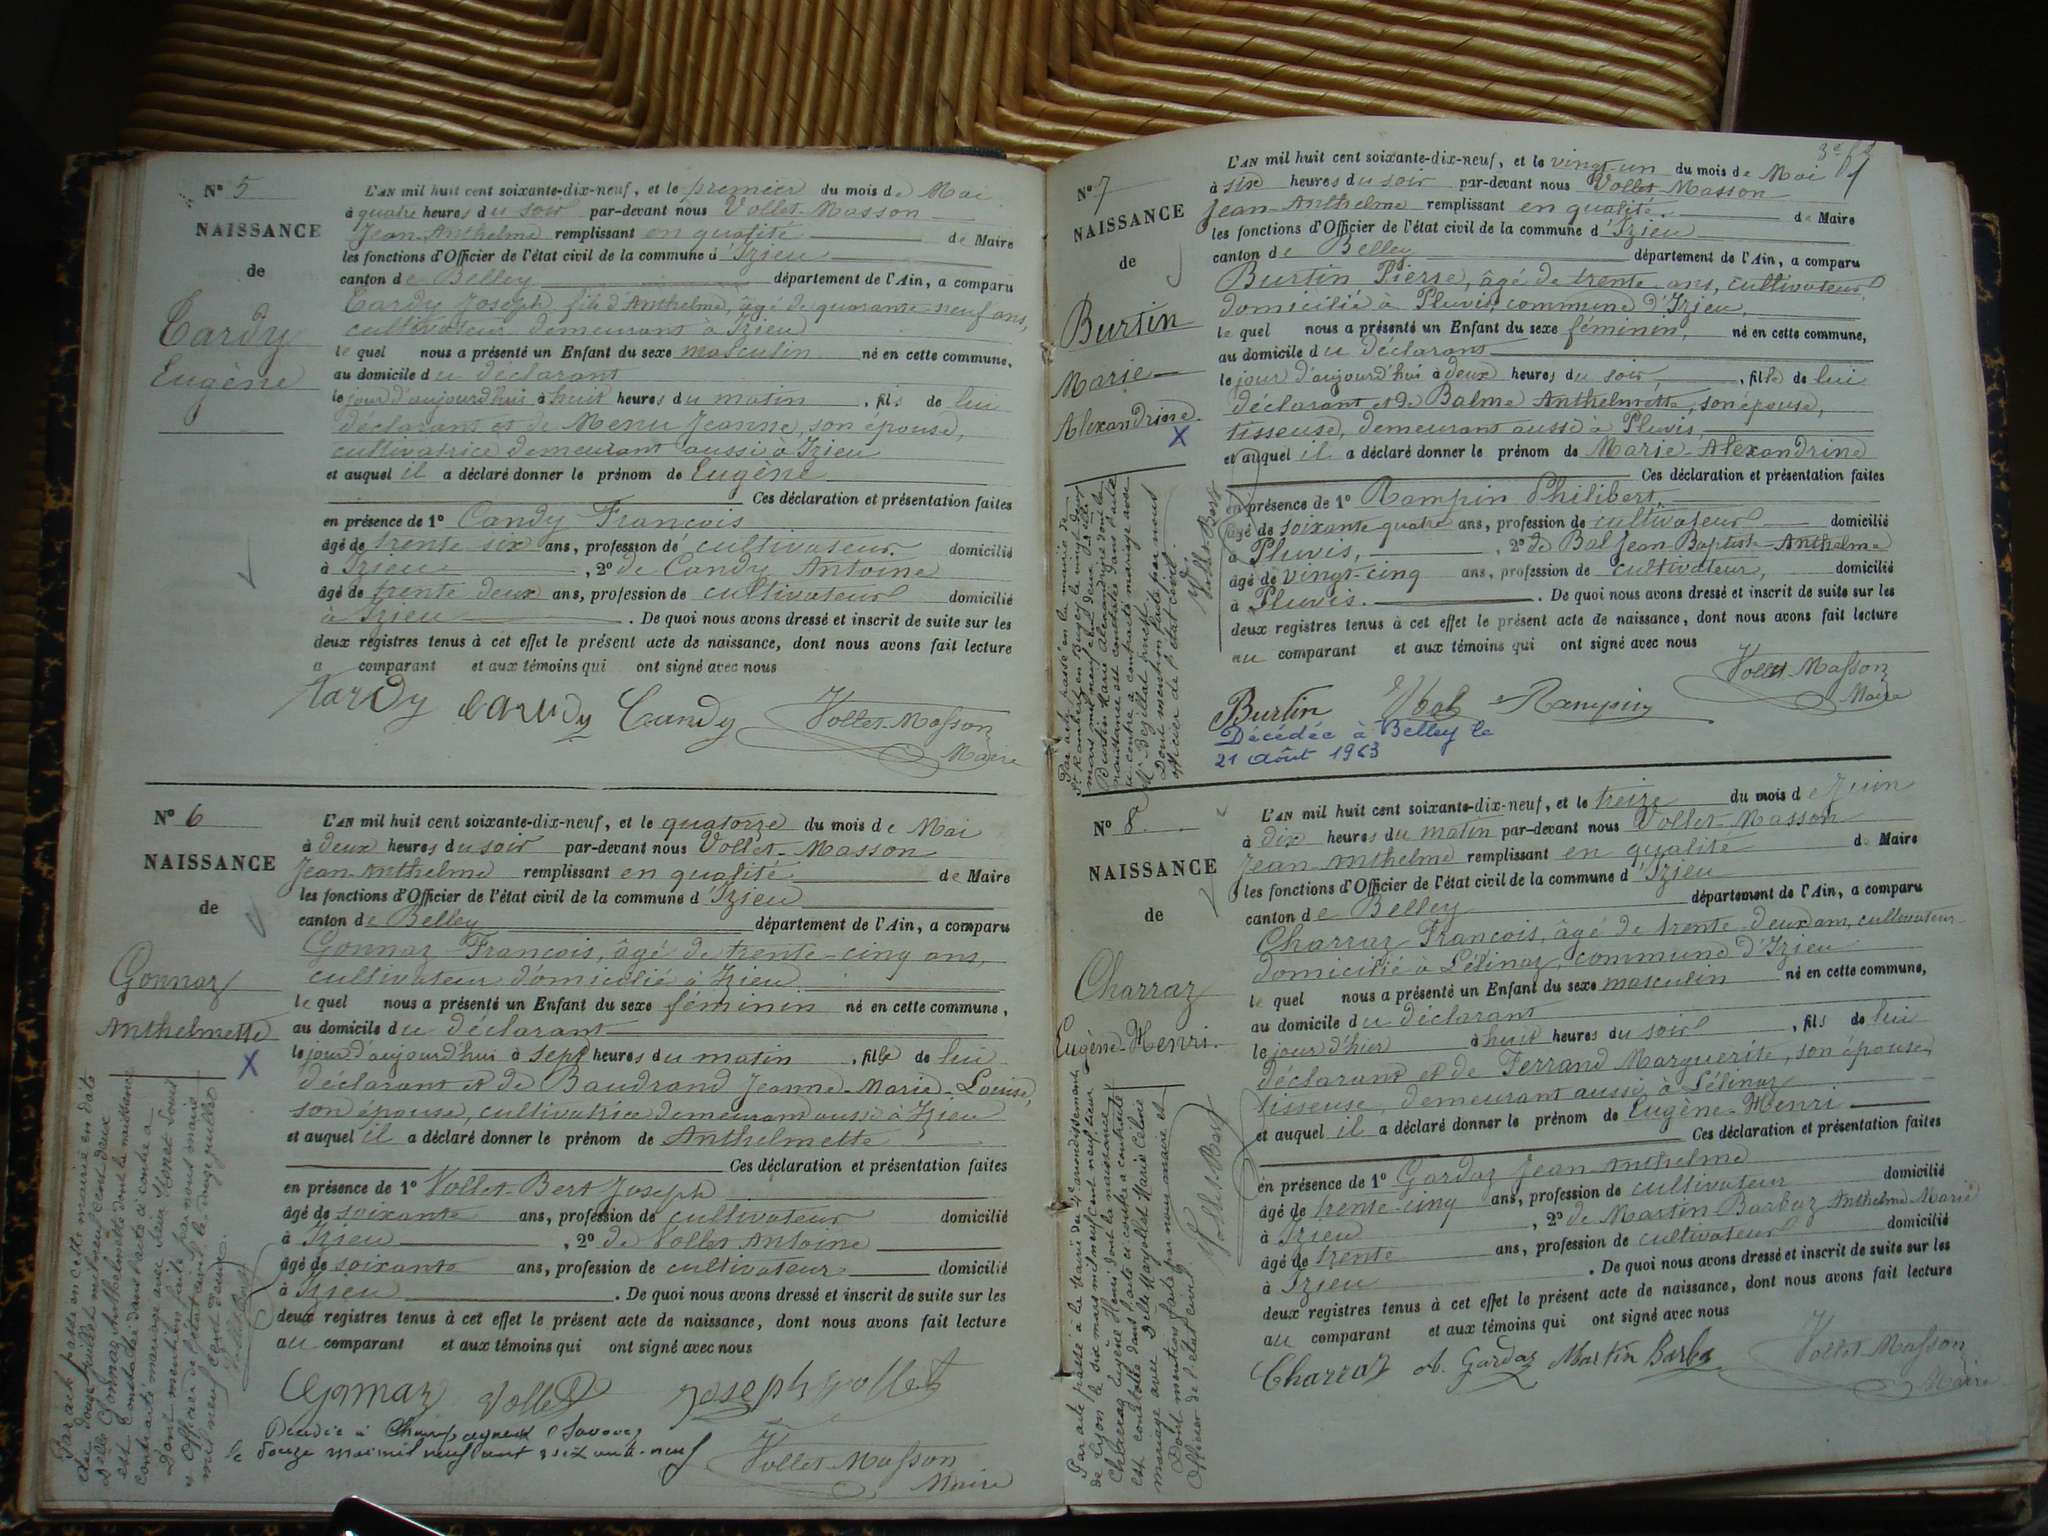 N° 5
NAISSANCE
de
Tardy
Eugène
L'AN mil huit cent soixante-dix-neuf, et le premier du mois de Mai
à quatre heures du soir par-devant nous Vollet-Masson
Jean-Anthelme remplissant en qualité de Maire
les fonctions d'Officier de l'état civil de la commune d'Izieu
canton de Belley département de l'Ain, a comparu
Tardy Joseph fils d'Anthelme, âgé de quarante neuf ans,
cultivateur demeurant à Izieu
le quel nous a présenté un Enfant du sexe masculin né en cette commune,
au domicile du déclarant
le jour d'aujourd'hui à huit heures du matin, fils de lui
déclarant et de Menu Jeanne, son épouse,
cultivatrice demeurant aussi à Izieu
et auquel il a déclaré donner le prénom de Eugène
Ces déclaration et présentation faites
en présence de 1° Candy François
âgé de trente six ans, profession de cultivateur domicilié
à Izieu, 2° de Candy Antoine
âgé de trente deux ans, profession de cultivateur domicilié
à Izieu. De quoi nous avons dressé et inscrit de suite sur les
deux registres tenus à cet effet le présent acte de naissance, dont nous avons fait lecture
a comparant et aux témoins qui ont signé avec nous
Tardy Candy Candy Vollet-Masson
Maire
N° 6
NAISSANCE
de
Gonnaz
Anthelmette
X
L'AN mil huit cent soixante-dix-neuf, et le quatorze du mois de Mai
à deux heures du soir par-devant nous Vollet-Masson
Jean-Anthelme remplissant en qualité de Maire
les fonctions d'Officier de l'état civil de la commune d'Izieu
canton de Belley département de l'Ain, a comparu
Gonnaz François, âgé de trente-cinq ans,
cultivateur domicilié à Izieu
le quel nous a présenté un Enfant du sexe féminin né en cette commune,
au domicile du déclarant
le jour d'aujourd'hui à sept heures du matin, fille de lui
déclarant et de Baudrand Jeanne-Marie-Louise,
son épouse, cultivatrice demeurant aussi à Izieu
et auquel il a déclaré donner le prénom de Anthelmette
Ces déclaration et présentation faites
en présence de 1° Vollet-Bert Joseph
âgé de soixante ans, profession de cultivateur domicilié
à Izieu, 2° de Vollet Antoine
âgé de soixante ans, profession de cultivateur domicilié
à Izieu. De quoi nous avons dressé et inscrit de suite sur les
deux registres tenus à cet effet le présent acte de naissance, dont nous avons fait lecture
au comparant et aux témoins qui ont signé avec nous
Gonnaz Vollet Joseph Vollet
Décédée à Champagneux (Savoie)
le douze mai mil neuf cent soixante-neuf
Vollet-Masson
Maire
Par acte passé en cette mairie en date
du douze juillet mil neuf cent deux
Delle Gonnaz Anthelmette dont la naissance
est constatée dans l'acte ci-contre a
contracté mariage avec Sieur Louis
Dont mention faite par nous maire
Officier de l'état civil le douze juillet
mil neuf cent deux.
N° 7
NAISSANCE
de
Burtin
Marie
Alexandrine
X
L'AN mil huit cent soixante-dix-neuf, et le vingt-un du mois de Mai
à six heures du soir par-devant nous Vollet-Masson
Jean-Anthelme remplissant en qualité de Maire
les fonctions d'Officier de l'état civil de la commune d'Izieu
canton de Belley département de l'Ain, a comparu
Burtin Pierre, âgé de trente ans, cultivateur,
domicilié à Pluvis, commune d'Izieu,
le quel nous a présenté un Enfant du sexe féminin, né en cette commune,
au domicile du déclarant
le jour d'aujourd'hui à deux heures du soir, fille de lui
déclarant et de Balme Anthelmette, son épouse,
tisseuse, demeurant aussi à Pluvis,
et auquel il a déclaré donner le prénom de Marie-Alexandrine
Ces déclaration et présentation faites
en présence de 1° Rampin Philibert
âgé de soixante quatre ans, profession de cultivateur domicilié
à Pluvis, 2° de Bal Jean-Baptiste-Anthelme
âgé de vingt-cinq ans, profession de cultivateur, domicilié
à Pluvis. De quoi nous avons dressé et inscrit de suite sur les
deux registres tenus à cet effet le présent acte de naissance, dont nous avons fait lecture
au comparant et aux témoins qui ont signé avec nous
Vollet-Masson
Maire
Burtin Bal Rampin
Décédée à Belley le
21 Août 1963
Par acte passé en la mairie de
St Rambert en Bugey le vingt deux
mars mil neuf cent deux
Burtin Marie Alexandrine dont la
naissance est constatée dans l'acte
ci contre a contracté mariage avec
Dont mention faite par nous
officier de l'état civil.
Vollet-Bert
N° 8
NAISSANCE
de
Charraz
Eugène-Henri
L'AN mil huit cent soixante-dix-neuf, et le treize du mois de Juin
à dix heures du matin par-devant nous Vollet-Masson
Jean-Anthelme remplissant en qualité de Maire
les fonctions d'Officier de l'état civil de la commune d'Izieu
canton de Belley département de l'Ain, a comparu
Charraz François, âgé de trente-deux ans, cultivateur
domicilié à Lélinaz, commune d'Izieu
le quel nous a présenté un Enfant du sexe masculin né en cette commune,
au domicile du déclarant
le jour d'hier à huit heures du soir, fils de lui
déclarant et de Ferrand Marguerite, son épouse,
tisseuse, demeurant aussi à Lélinaz
et auquel il a déclaré donner le prénom de Eugène-Henri
Ces déclaration et présentation faites
en présence de 1° Gardaz Jean-Anthelme
âgé de trente-cinq ans, profession de cultivateur domicilié
à Izieu, 2° de Martin Barbaz Anthelme-Marie
âgé de trente ans, profession de cultivateur domicilié
à Izieu. De quoi nous avons dressé et inscrit de suite sur les
deux registres tenus à cet effet le présent acte de naissance, dont nous avons fait lecture
au comparant et aux témoins qui ont signé avec nous
Charraz A. Gardaz Martin Barbaz
Vollet-Masson
Maire
Par acte passé à la Mairie du 4e arrondissement
de Lyon le six mars mil neuf cent neuf sieur
Charraz Eugène Henri dont la naissance
est constatée dans l'acte ci contre a contracté
mariage avec Delle Marie Céline
Dont mention faite par nous maire et
Officier de l'état civil.
Vollet-Bert